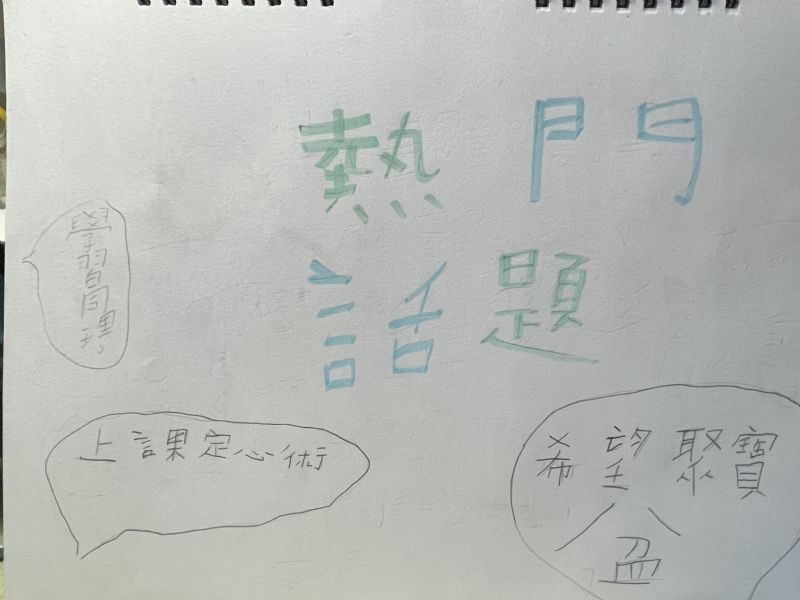 熱門
話題
學習
上課定心術
希望聚寶
盆